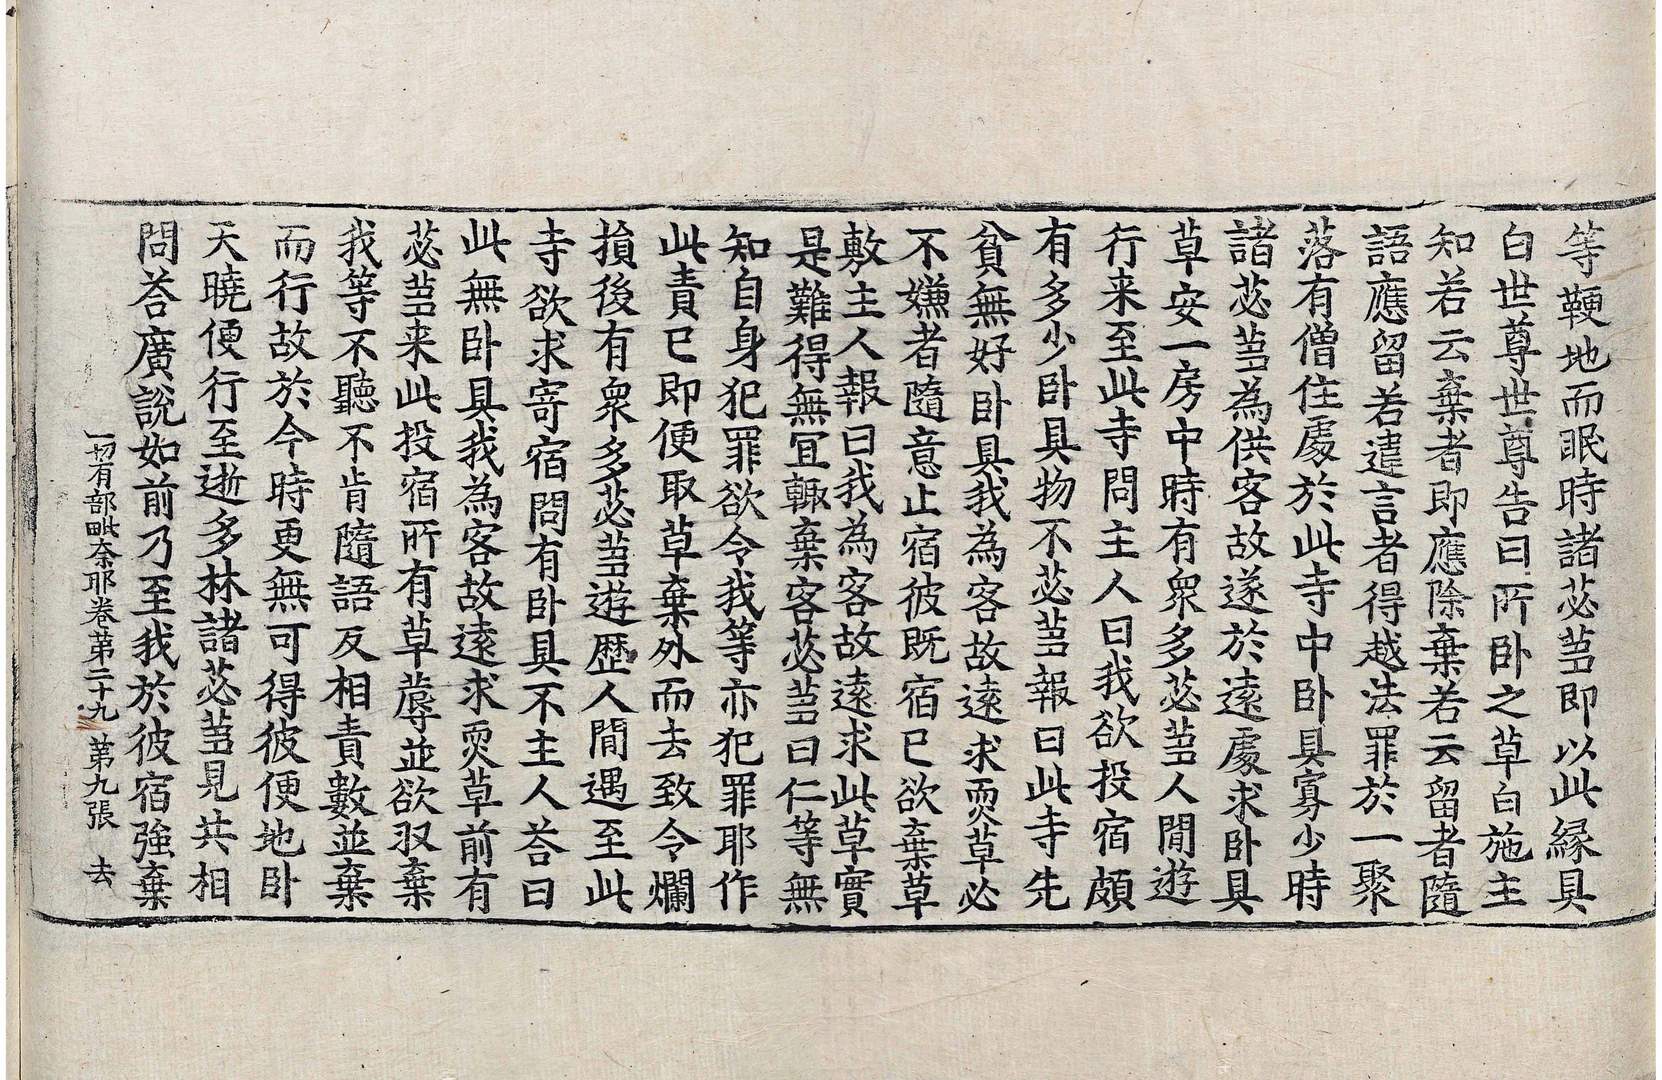 等鞕地而眠時諸苾芻即以此緣具
白世尊世尊告曰所卧之草白施主
知若云棄者即應除棄若云留者隨
語應留若違言者得越法罪於一聚
落有僧住處於此寺中卧具寡少時
諸苾芻為供客故遂於遠處求卧具
草安一房中時有眾多苾芻人間遊
行来至此寺問主人曰我欲投宿頗
有多少卧具物不苾芻報曰此寺先
貧無好卧具我為客故遠求耎草必
不嫌者隨意止宿彼既宿已欲棄草
敷主人報曰我為客故遠求此草實
是難得無宜輙棄客苾芻曰仁等無
知自身犯罪欲令我等亦犯罪耶作
此責已即便取草棄外而去致令爛
損後有眾多苾芻遊歷人間遇至此
寺欲求寄宿問有卧具不主人荅曰
此無卧具我為客故遠求耎草前有
苾芻来此投宿所有草蓐並欲収棄
我等不聽不肯隨語反相責數並棄
而行故於今時更無可得彼便地卧
天曉便行至逝多林諸苾芻見共相
問荅廣說如前乃至我於彼宿強棄
一切有部毗奈耶卷第三十九 第九張 去